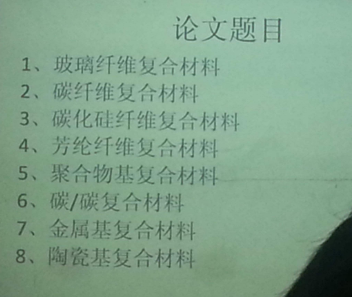 论文题目
1、玻璃纤维复合材料
2、碳纤维复合材料
3、碳化硅纤维复合材料
4、芳纶纤维复合材料
5、聚合物基复合材料
6、碳/碳复合材料
7、金属基复合材料
8、陶瓷基复合材料